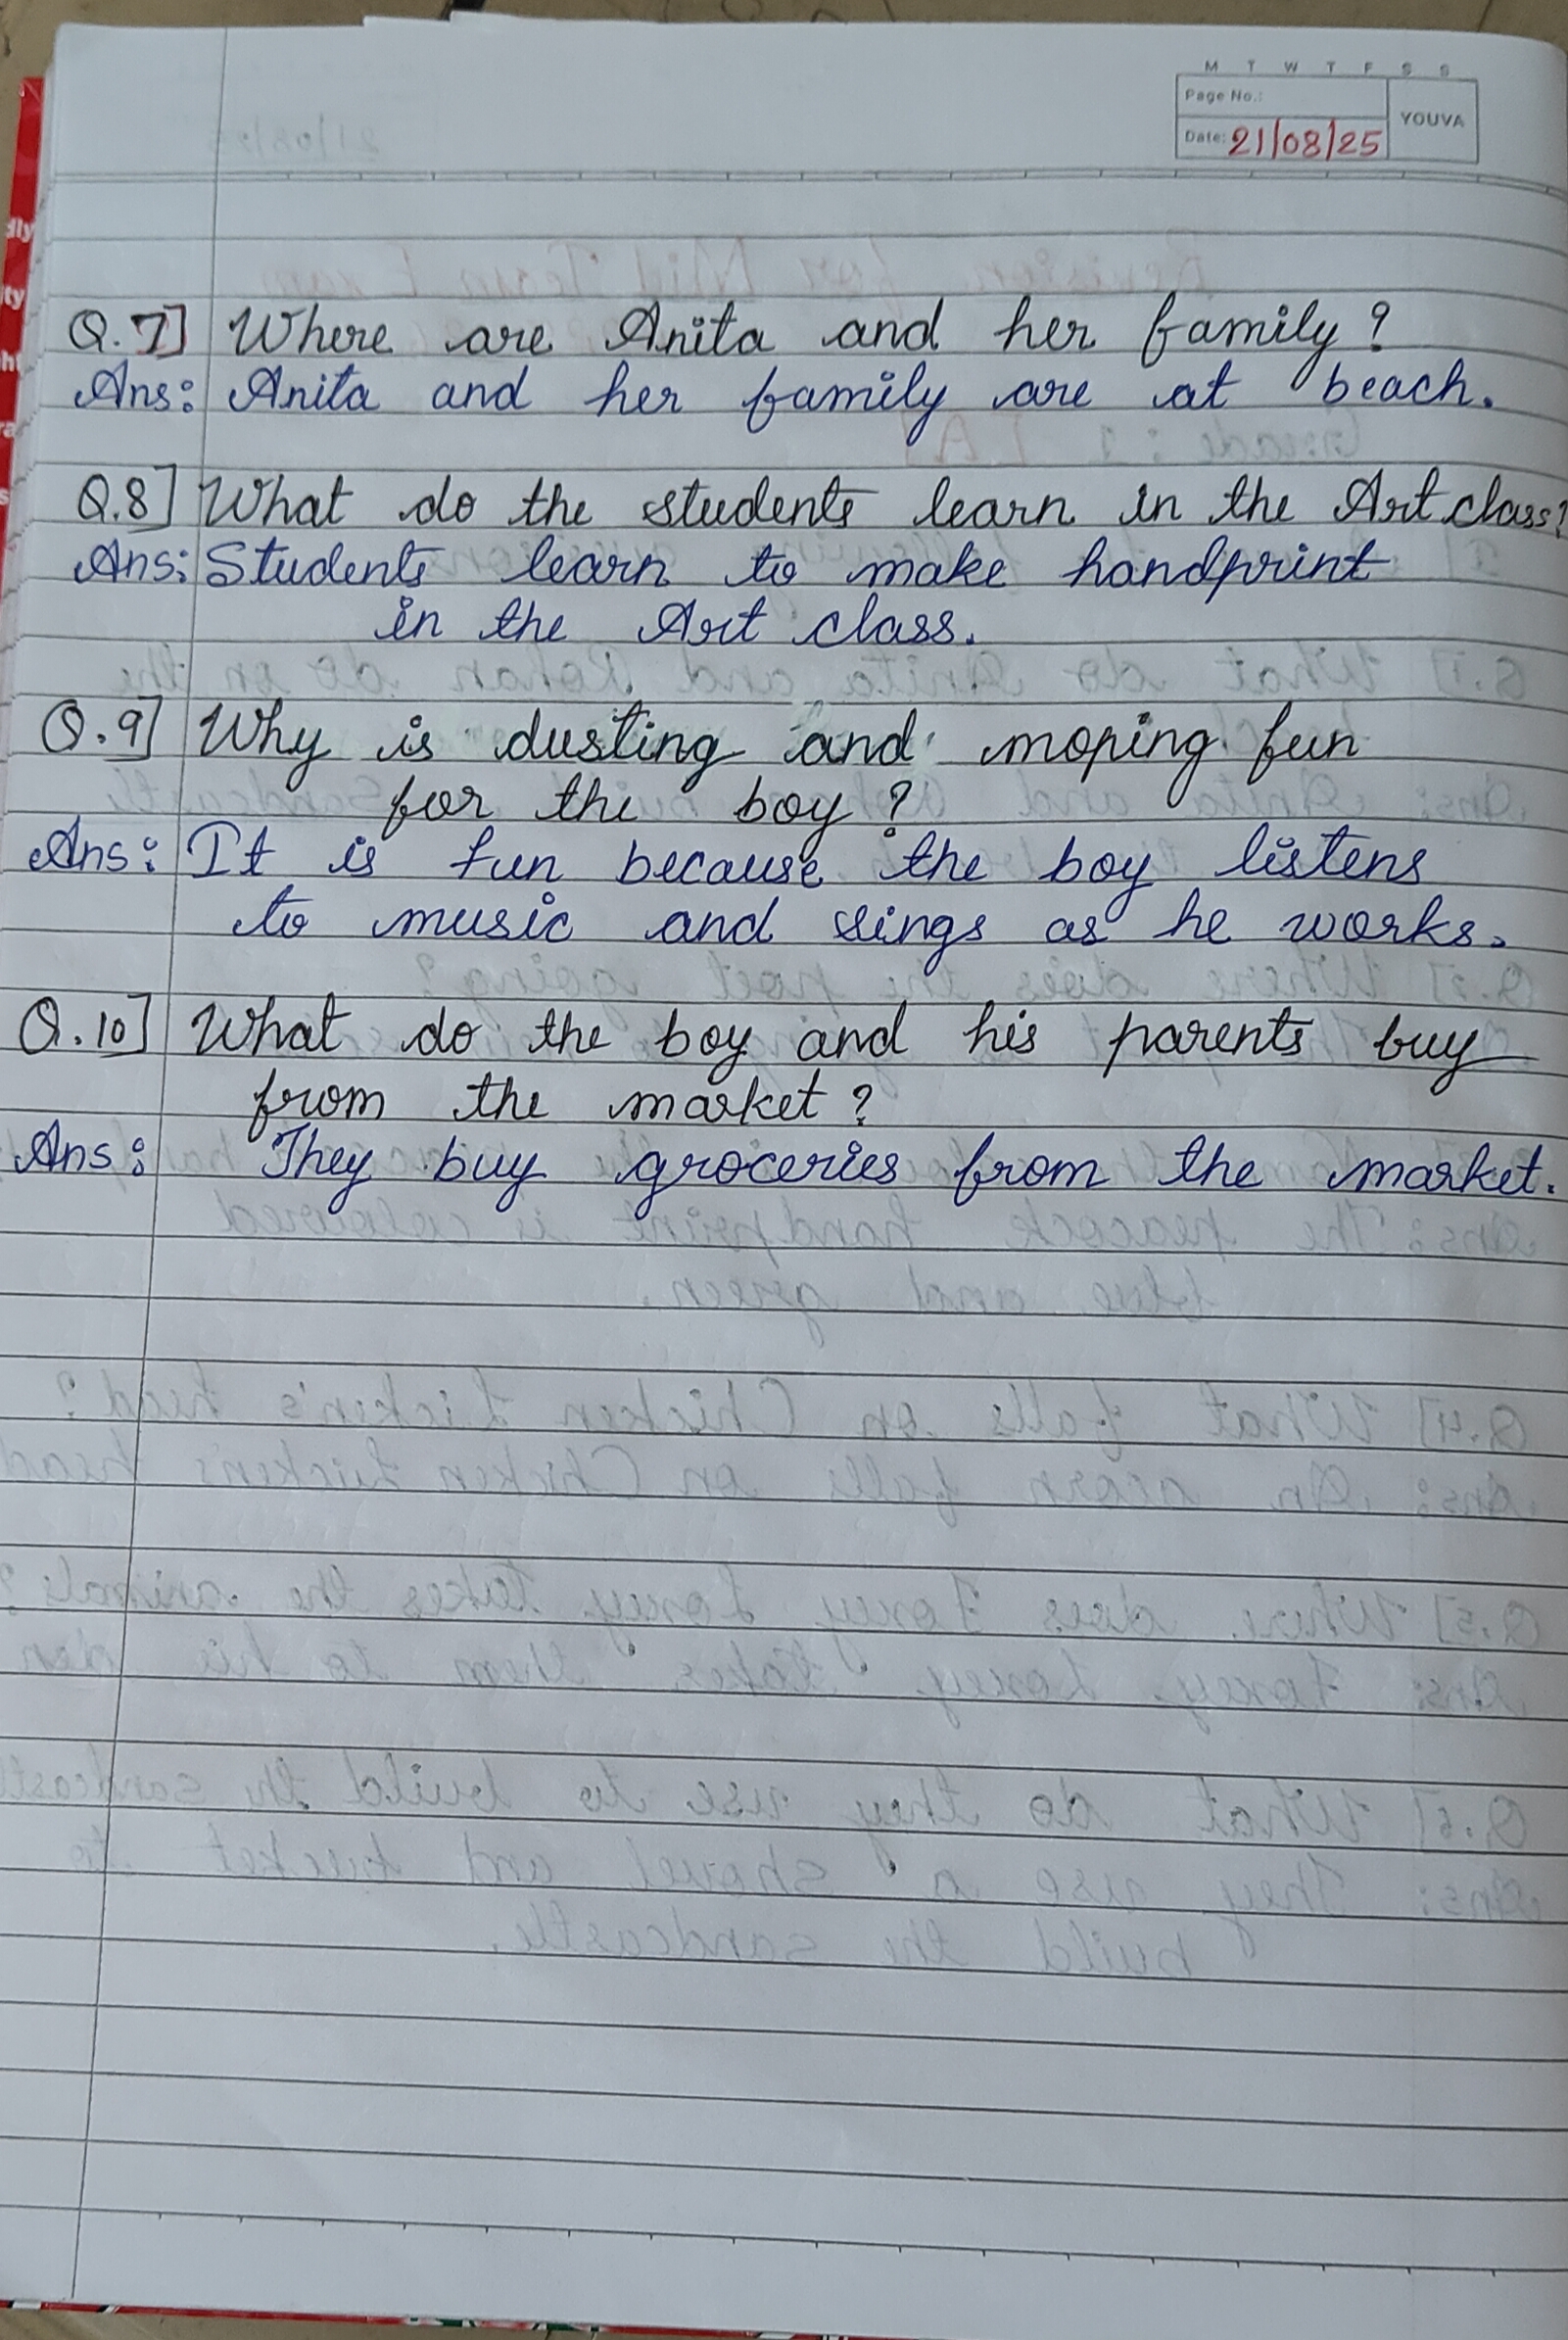 M T W T F S S
Page No.:
YOUVA
Date: 21/08/25
Q.7] Where are Anita and her family?
Ans: Anita and her family are at beach.
Q.8] What do the students learn in the Art class?
Ans: Students learn to make handprint
in the Art class.
Q.9] Why is dusting and moping fun
for the boy?
Ans: It is fun because the boy listens
to music and sings as he works.
Q.10] What do the boy and his parents buy
from the market?
Ans: They buy groceries from the market.